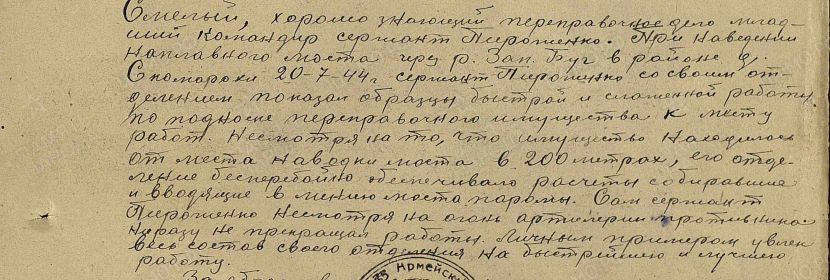 Смелый, хорошо знающий переправочное дело млад-
ший командир сержант Пирошенко. При наведении
наплавного моста чрез р. Зап. Буг в районе д.
Скоморохи 20-7-44г. сержант Пирошенко со своим от-
делением показал образцы быстрой и слаженной работы
по подноске переправочного имущества к месту
работ. Несмотря на то, что имущество находилось
от места наводки моста в 200 метрах, его отде-
ление бесперебойно обеспечивало расчеты собиравшие
и вводящие в линию моста паромы. Сам сержант
Пирошенко несмотря на огонь артилерии противника
ниразу не прекращал работы. Личным примером увлек
весь состав своего отделения на быстрейшую и лучшую
работу.
За
Армейск